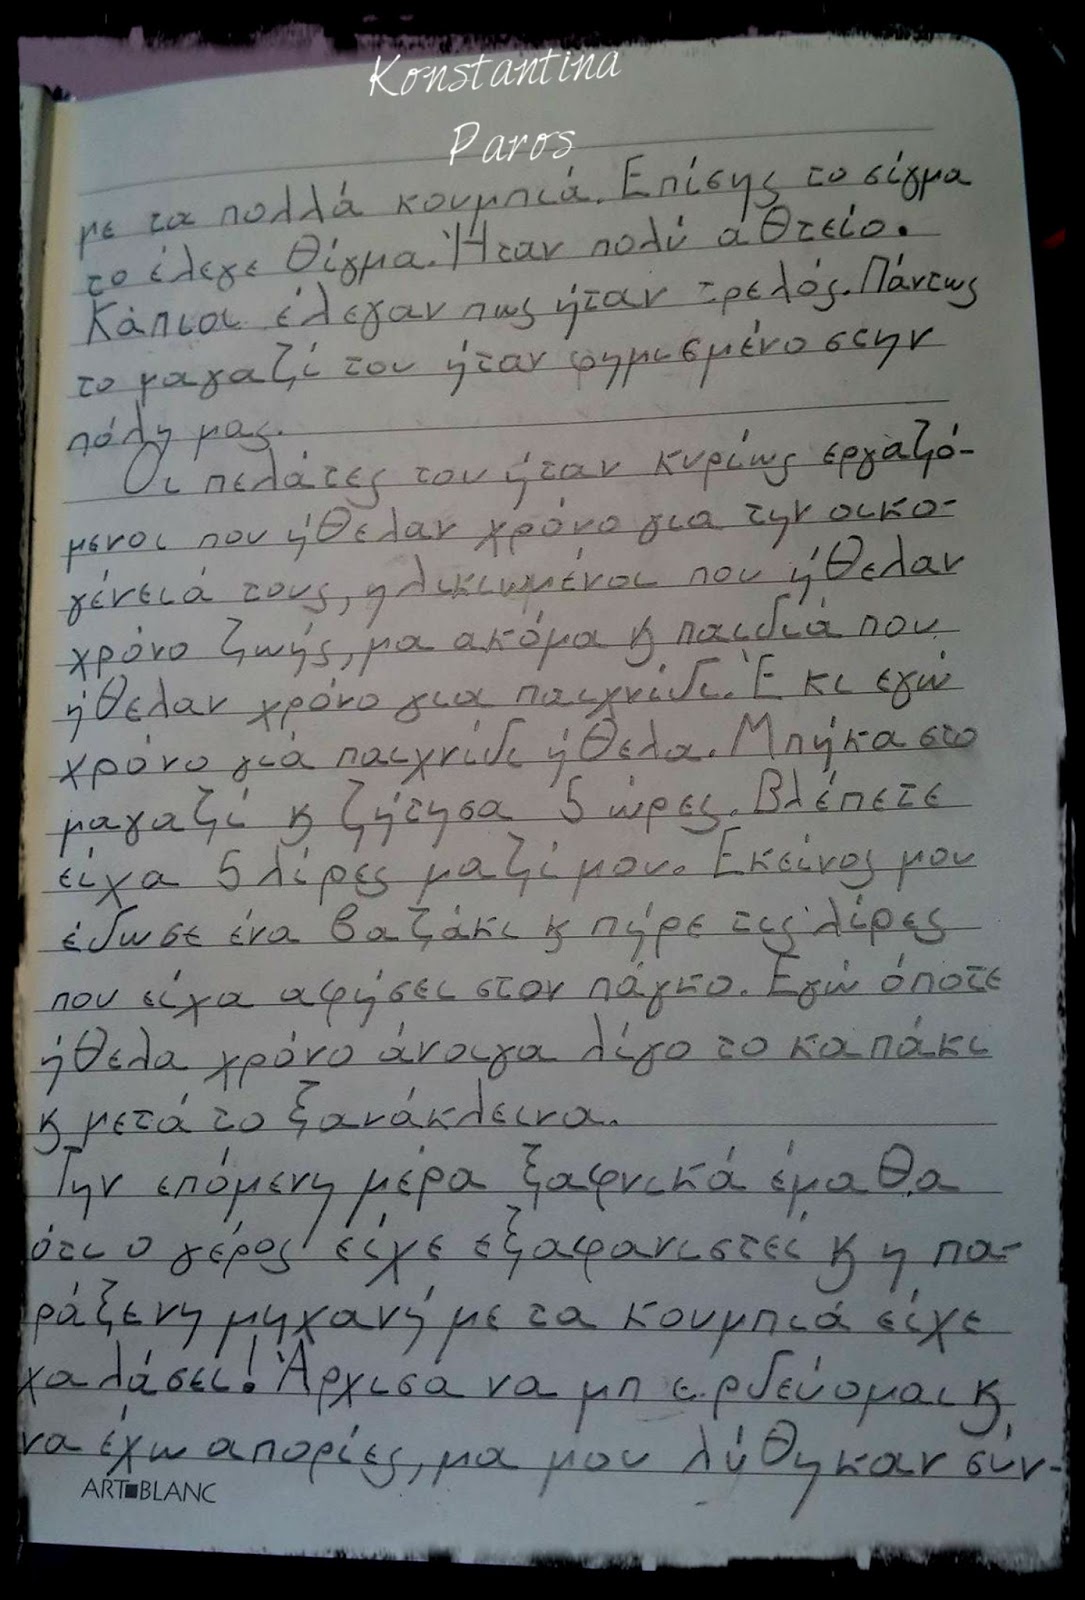 Konstantina
Paros
με τα πολλά κουμπιά. Επίσης το σίγμα
το έλεγε θίγμα. Ήταν πολύ αθτείο.
Κάπιοι έλεγαν πως ήταν τρελός. Πάντως
το μαγαζί του ήταν φημισμένο στην
πόλη μας.
Οι πελάτες του ήταν κυρίως εργαζό-
μενοι που ήθελαν χρόνο για την οικο-
γένειά τους, ηλικιωμένοι που ήθελαν
χρόνο ζωής, μα ακόμα κ παιδιά που
ήθελαν χρόνο για παιχνίδι. Έ κι εγώ
χρόνο γιά παιχνίδι ήθελα. Μπήκα στο
μαγαζί κ ζήτησα 5 ώρες. Βλέπετε
είχα 5 λίρες μαζί μου. Εκείνος μου
έδωσε ένα βαζάκι κ πήρε τις λίρες
που είχα αφήσει στον πάγκο. Εγώ όποτε
ήθελα χρόνο άνοιγα λίγο το καπάκι
κ μετά το ξανάκλεινα.
Την επόμενη μέρα ξαφνικά έμαθα
ότι ο γέρος είχε εξαφανιστεί κ η πα-
ράξενη μηχανή με τα κουμπιά είχε
χαλάσει! Άρχισα να μπερδεύομαι κ
να έχω απορίες, μα μου λύθηκαν σύν-
ART BLANC